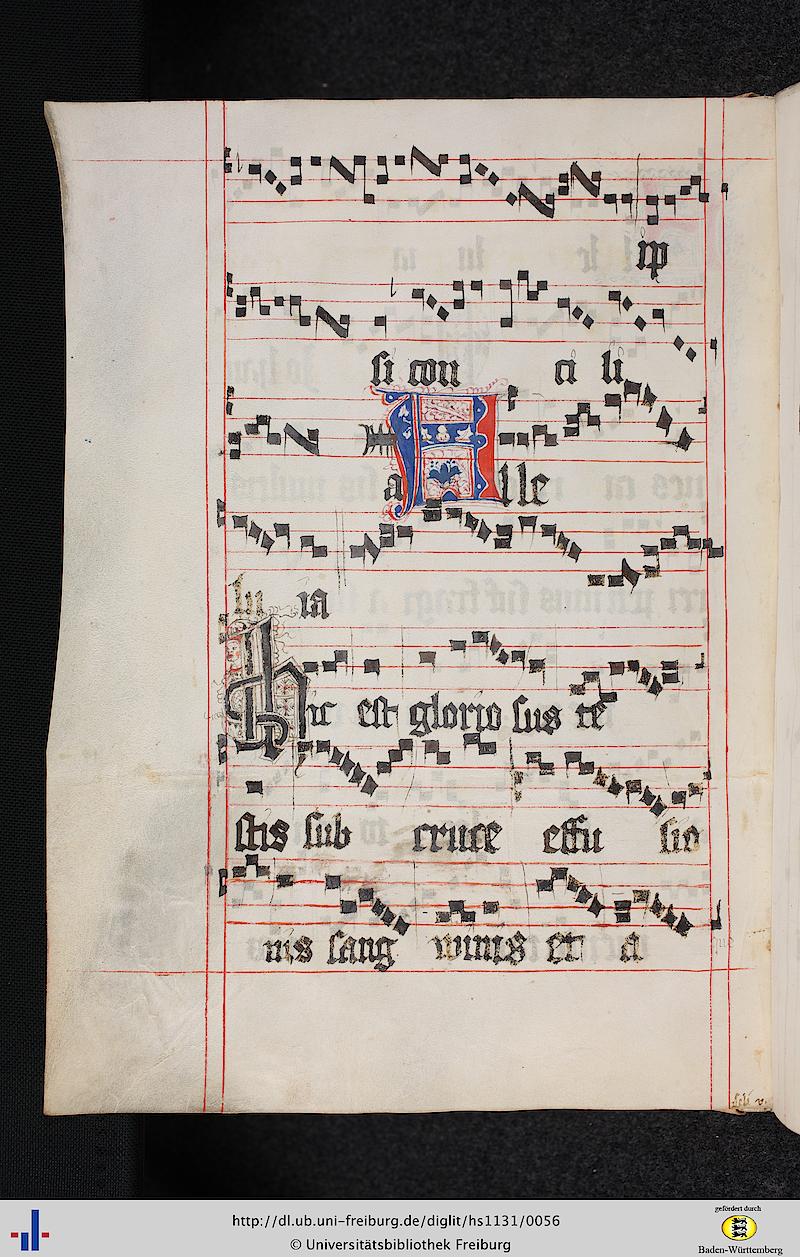 ip
si con ci li
a Alle
lu ia
hic est glorio sus te
stis sub cruce effu sio
nis sang winis et a
http://dl.ub.uni-freiburg.de/diglit/hs1131/0056
© Universitätsbibliothek Freiburg
gefördert durch
Baden-Württemberg